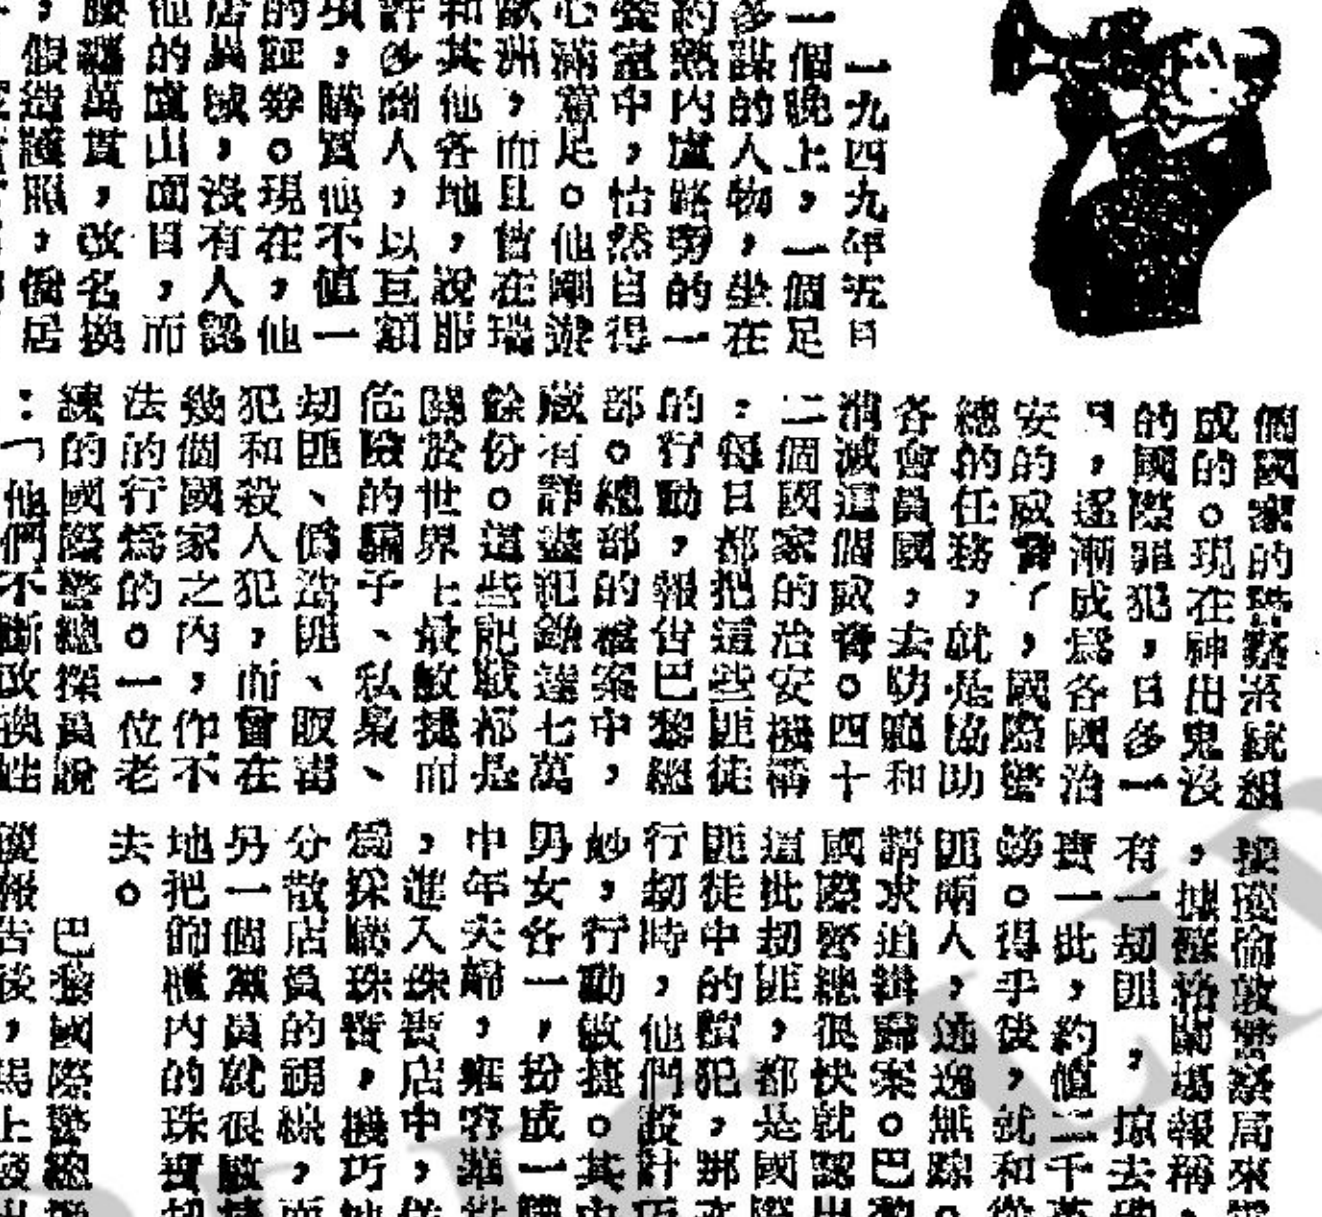 一九四九年五月
一個晚上，一個足
多謀的人物，坐在
的熱內盧路旁的一
室中，怡然自得
心滿意足。他剛遊
歐洲，而且曾在瑞
和其他各地，說服
許多商人，以互額
，購買他不值一
的証券。現在，他
店異域，沒有人認
他的廬山面目，而
腰纏萬貫，改名換
，假造護照，僑居
個國家的警察系統組
成的。現在神出鬼沒
的國際罪犯，日多一
日，逐漸成爲各國治
安的威脅了，國際警
總的任務，就是協助
各會員國，去防範和
消滅這個威脅。四十
二個國家的治安機構
，每日都把這些匪徒
的行動，報告巴黎總
部。總部的檔案中，
藏有詳盡犯錄達七萬
餘份。這些記載都是
關於世界上最敏捷而
危險的騙子、私梟、
劫匪、僞造匪、販毒
犯和殺人犯，而曾在
幾個國家之內，作不
法的行爲的。一位老
練的國際警總探員說
：「他們不斷改換姓
接獲倫敦警察局來電
，據蘇格蘭場報稱，
有一劫匪，掠去
寶一批，約值二千
。得乎後，就和從
匪兩人，逃逸無踪。
請求追緝歸案。巴黎
國際警總很快就認出
這批劫匪，都是國際
匪徒中的慣犯，那
行劫時，他們設計巧
妙，行動敏捷。其中
男女各一，扮成一
中年夫婦，雍容
，進入珠寶店中，
爲採購珠寶，機巧地
分散店員的視線，而
另一個黨員就很敏捷
地把飾櫃內的珠寶
去。
巴黎國際警總
報告後，馬上發出